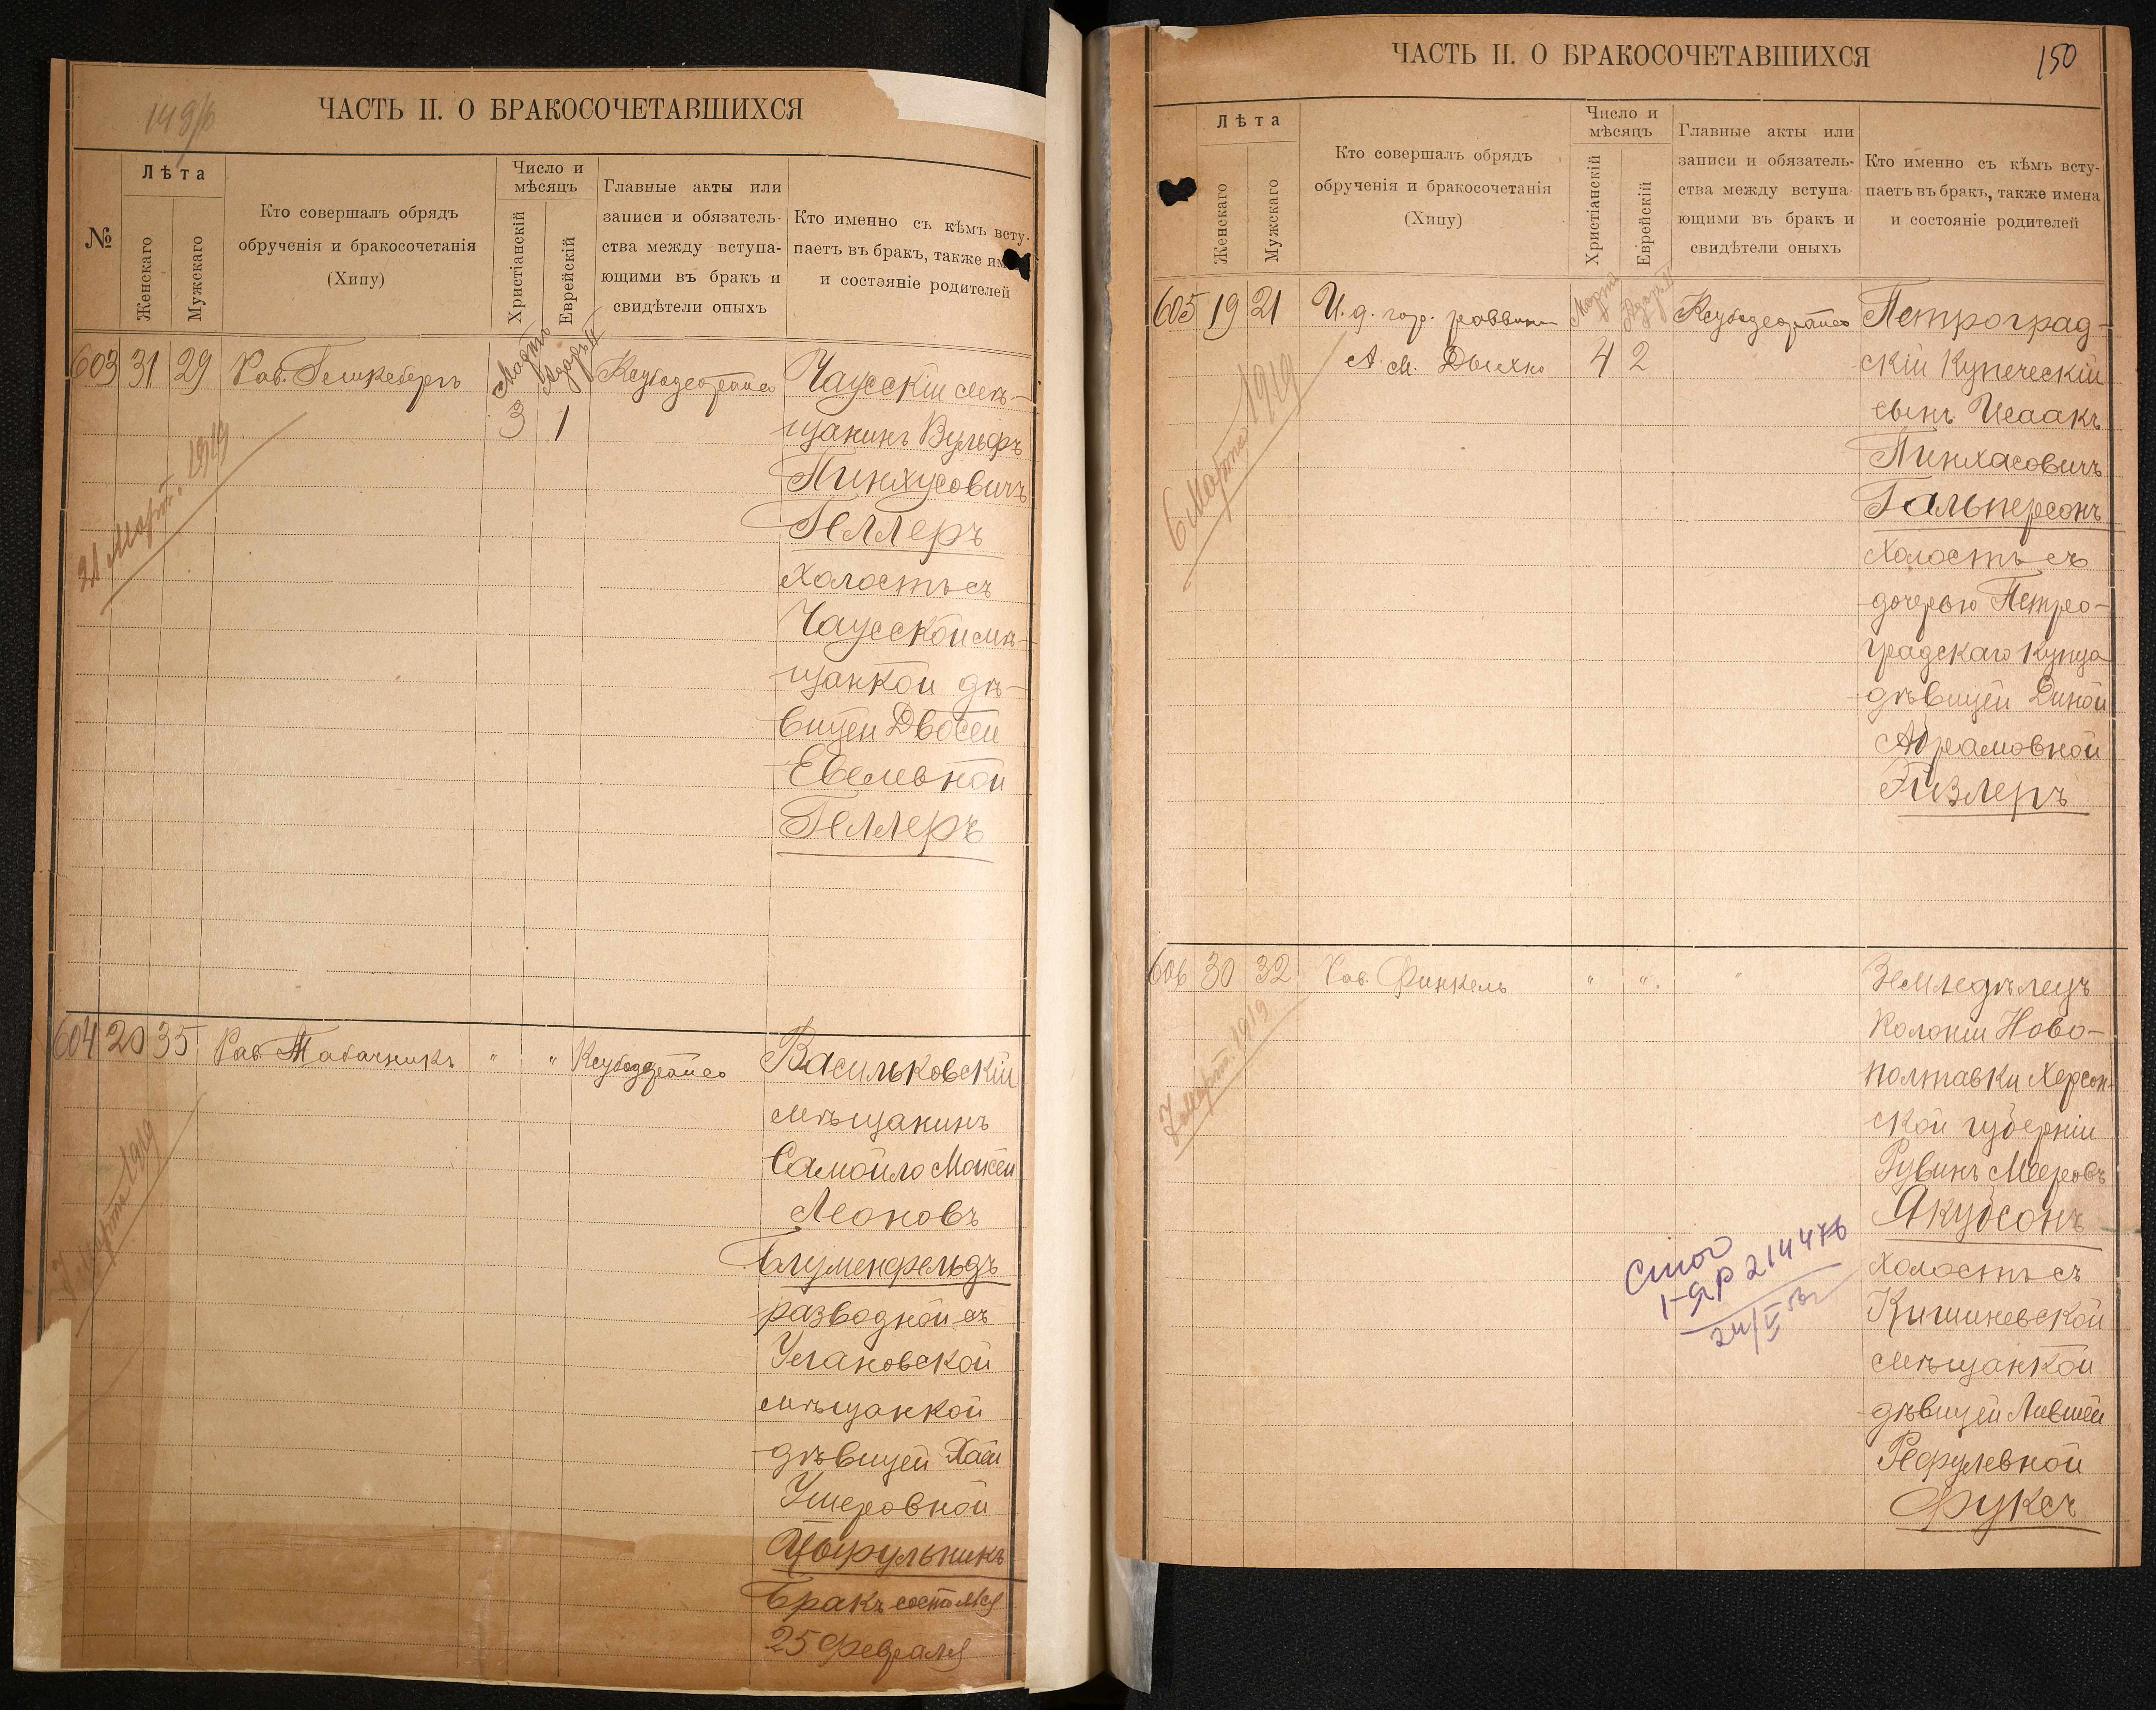 149/б
ЧАСТЬ II. О БРАКОСОЧЕТАВШИХСЯ
№
Лѣта
Женскаго
Мужскаго
Кто совершалъ обрядъ
обрученія и бракосочетанія
(Хипу)
Число и
мѣсяцъ
Христіанскій
Еврейскій
Главные акты или
записи и обязатель-
ства между вступа-
ющими въ бракъ и
свидѣтели оныхъ
Кто именно съ кѣмъ всту-
паетъ въ бракъ, также
и состояніе родителей
603 31 29 Рав.
Мартъ Адаръ II
3 1
21 Март. 1919
Чаусскій мѣ-
щанинъ Вульфъ
Пинхусовичъ
Геллеръ
холостъ съ
Чаусской мѣ-
щанкой дѣ-
вицей Двосей
Евелевной
Геллеръ
604 20 35 Рав. Табачникъ " "
7 Марта 1919
Васильковскій
мѣщанинъ
Самойло Моисей
Леоновъ
Блуменфельдъ
разводной съ
Улановской
мѣщанкой
дѣвицей Хаей
Ушеровной
Цырульникъ
Бракъ состоялся
25 февраля
ЧАСТЬ II. О БРАКОСОЧЕТАВШИХСЯ
150
Лѣта
Женскаго
Мужскаго
Кто совершалъ обрядъ
обрученія и бракосочетанія
(Хипу)
Число и
мѣсяцъ
Христіанскій
Еврейскій
Главные акты или
записи и обязатель-
ства между вступа-
ющими въ бракъ и
свидѣтели оныхъ
Кто именно съ кѣмъ всту-
паетъ въ бракъ, также имена
и состояніе родителей
605 19 21 И. д. гор. раввина
А. М. Дыхно
Марта Адаръ II
4 2
6 Марта 1919
Петроград-
скій Купеческій
сынъ Исаакъ
Пинхасовичъ
Гальперсонъ
холостъ съ
дочерью Петро-
градскаго Купца
дѣвицей Диной
Абрамовной
Гизлеръ
606 30 32 Рав. Финкель " " "
7 Март. 1919
Земледѣлецъ
Колоніи Ново-
полтавки Херсон-
ской губерніи
Рувинъ Мееровъ
Якубсонъ
холостъ съ
Кишиневской
мѣщанкой
дѣвицей Лившей
Рефулевной
Фуксъ
I-ЯР 214476
24/V 53г